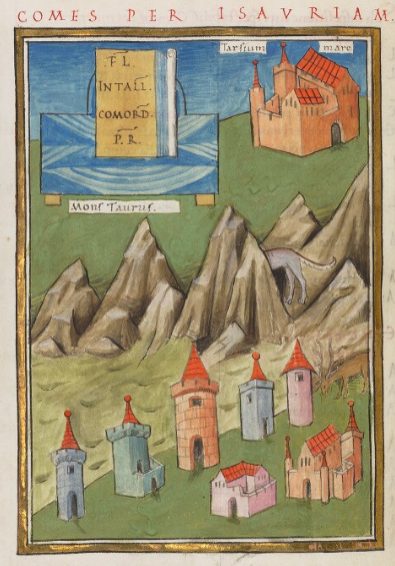 COMES PER ISAVRIAM.
Tarsium mare.
FL.
INTALL.
COMORD.
P. R.
Mons Taurus.